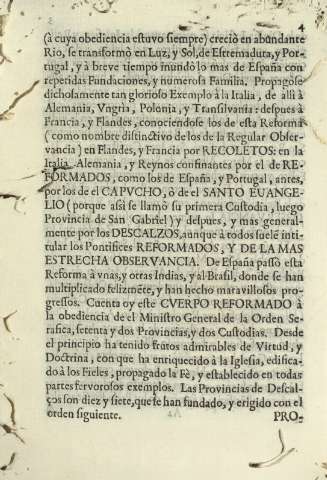 4
(à cuya obediencia estuvo siempre) creciò en abundante
Rio, se transformò en Luz, y Sol, de Estremadura, y Por-
tugal, y à breve tiempo inundò lo mas de España con
repetidas Fundaciones, y numerosa Familia. Propagòse
dichosamente tan glorioso Exemplo à la Italia, de allì à
Alemania, Vngria, Polonia, y Transilvania: despues à
Francia, y Flandes, conociendose los de esta Reforma
(como nombre distinctivo de los de la Regular Obser-
vancia) en Flandes, y Francia por RECOLETOS: en la
Italia, Alemania, y Reynos confinantes por el de RE-
FORMADOS, como los de España, y Portugal, antes,
por los de el CAPVCHO, ò de el SANTO EUANGE-
LIO (porque asi se llamò su primera Custodia, luego
Provincia de San Gabriel) y despues, y mas general-
mente por los DESCALZOS, aunque à todos suelē inti-
tular los Pontifices REFORMADOS, Y DE LA MAS
ESTRECHA OBSERVANCIA. De España passò esta
Reforma à vnas, y otras Indias, y al Brasil, donde se han
multiplicado felizmēte, y han hecho maravillosos pro-
gressos. Cuenta oy este CVERPO REFORMADO à
la obediencia de el Ministro General de la Orden Se-
rafica, setenta y dos Provincias, y dos Custodias. Desde
el principio ha tenido frutos admirables de Virtud, y
Doctrina, con que ha enriquecido à la Iglesia, edifica-
do à los Fieles, propagado la Fè, y establecido en todas
partes fervorosos exemplos. Las Provincias de Descal-
ços son diez y siete, que se han fundado, y erigido con el
orden siguiente. PRO-